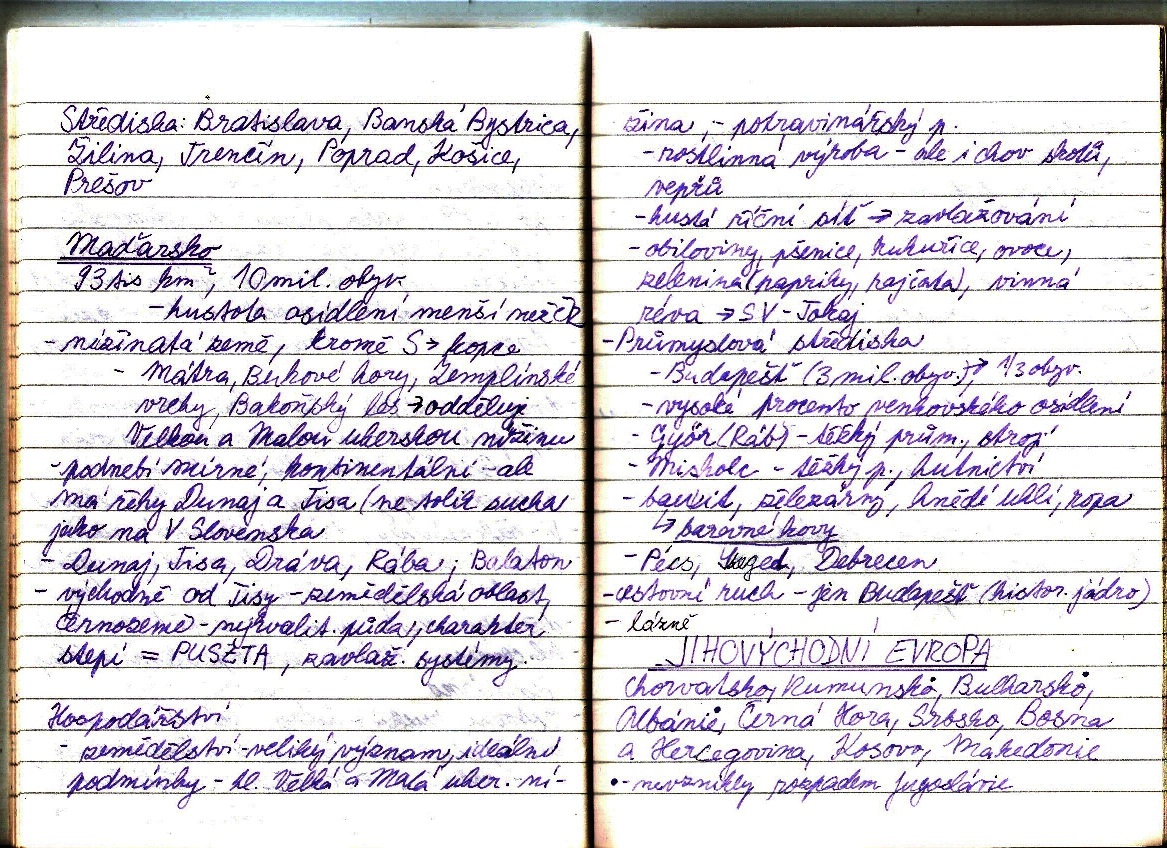 Střediska: Bratislava, Banská Bystrica,
Žilina, Trenčín, Poprad, Košice,
Prešov
Maďarsko
93 tis km², 10 mil. obyv.
- hustota osídlení menší než ČR
- nížinatá země, kromě S → kopce
- Mátra, Bukové hory, Zemplínské
vrchy, Bakoňský les → odděluje
Velkou a Malou uherskou nížinu
- podnebí mírné, kontinentální - ale
má řeky Dunaj a Tisa (ne tolik sucha
jako na V Slovenska
- Dunaj, Tisa, Dráva, Rába; Balaton
- východně od Tisy - zemědělská oblast,
černozemě - nejkvalit. půda!, charakter
stepí = PUSZTA, zavlaž. systémy.
Hospodářství
- zemědělství - veliký význam, ideální
podmínky - hl. Velká a Malá uher. ní-
žina, - potravinářský p.
- rostlinná výroba - ale i chov skotů,
vepřů
- hustá říční síť → zavlažování
- obiloviny, pšenice, kukuřice, ovoce,
zelenina (papriky, rajčata), vinná
réva → SV - Tokaj
- Průmyslová střediska
- Budapešť (3 mil. obyv.) → 1/3 obyv.
- vysoké procento venkovského osídlení
- Győr (Ráb) - těžký prům., stroj.
- Miskolc - těžký p., hutnictví
- bauxit, zelezárny, hnědé uhlí, ropa
↳ barevné kovy
- Pécs, Szeged, Debrecen
- cestovní ruch - jen Budapešť (histor. jádro)
- lázně
JIHOVÝCHODNÍ EVROPA
Chorvatsko, Rumunsko, Bulharsko,
Albánie, Černá Hora, Srbsko, Bosna
a Hercegovina, Kosovo, Makedonie
• - nevznikly rozpadem Jugoslávie